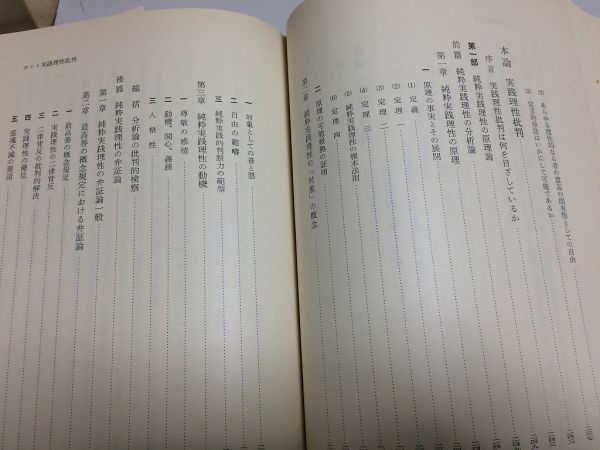 (2) あらゆる理性的なる者の意志の固有性としての自由
(3) 定言的命法はいかにして可能であるか
本論 実践理性批判
序言 実践理性批判は何を目ざしているか
第一部 純粋実践理性の原理論
前篇 純粋実践理性の分析論
第一章 純粋実践理性の原理
一 原理の事実とその展開
(1) 定義
(2) 定理 一
(3) 定理 二
(4) 定理 三
(5) 純粋実践理性の根本法則
(6) 定理 四
二 原理の可能根拠の証明
第二章 純粋実践理性の「対象」の概念
一 対象としての善と悪
二 自由の範疇
三 純粋実践的判断力の範型
第三章 純粋実践理性の動機
一 尊敬の感情
二 動機、関心、義務
三 人格性
総括 分析論の批判的検察
後篇 純粋実践理性の弁証論
第一章 純粋実践理性の弁証論一般
第二章 最高善の概念規定における弁証論
一 最高善の概念規定
二 実践理性の二律背反
三 二律背反の批判的解決
四 実践理性の優位
五 霊魂不滅の要請
カント実践理性批判